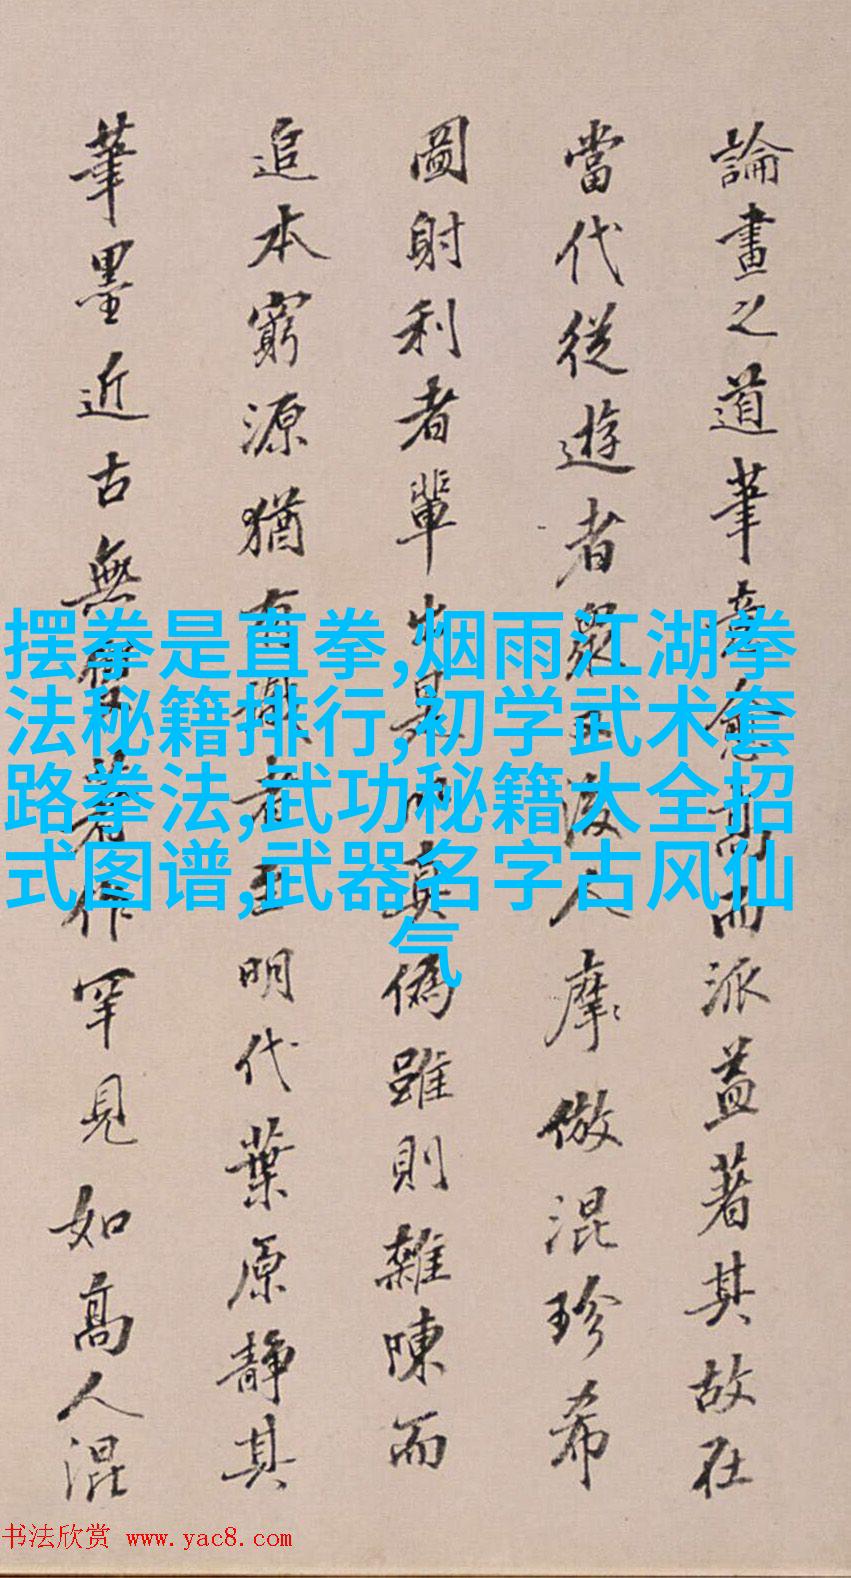 論畫之道筆意愈高而派益著其故在
當代從遊者衆後人摩倣混珍希
圖射利者輩出是以真偽雖則雜陳而
追本窮源猶有識者王明代葉原靜其
筆墨近古無著作罕見如高人混
摆拳是直拳,烟雨江湖拳
法秘籍排行,初学武术套
路拳法,武功秘籍大全招
式图谱,武器名字古风仙
气
书法欣赏 www.yac8.com